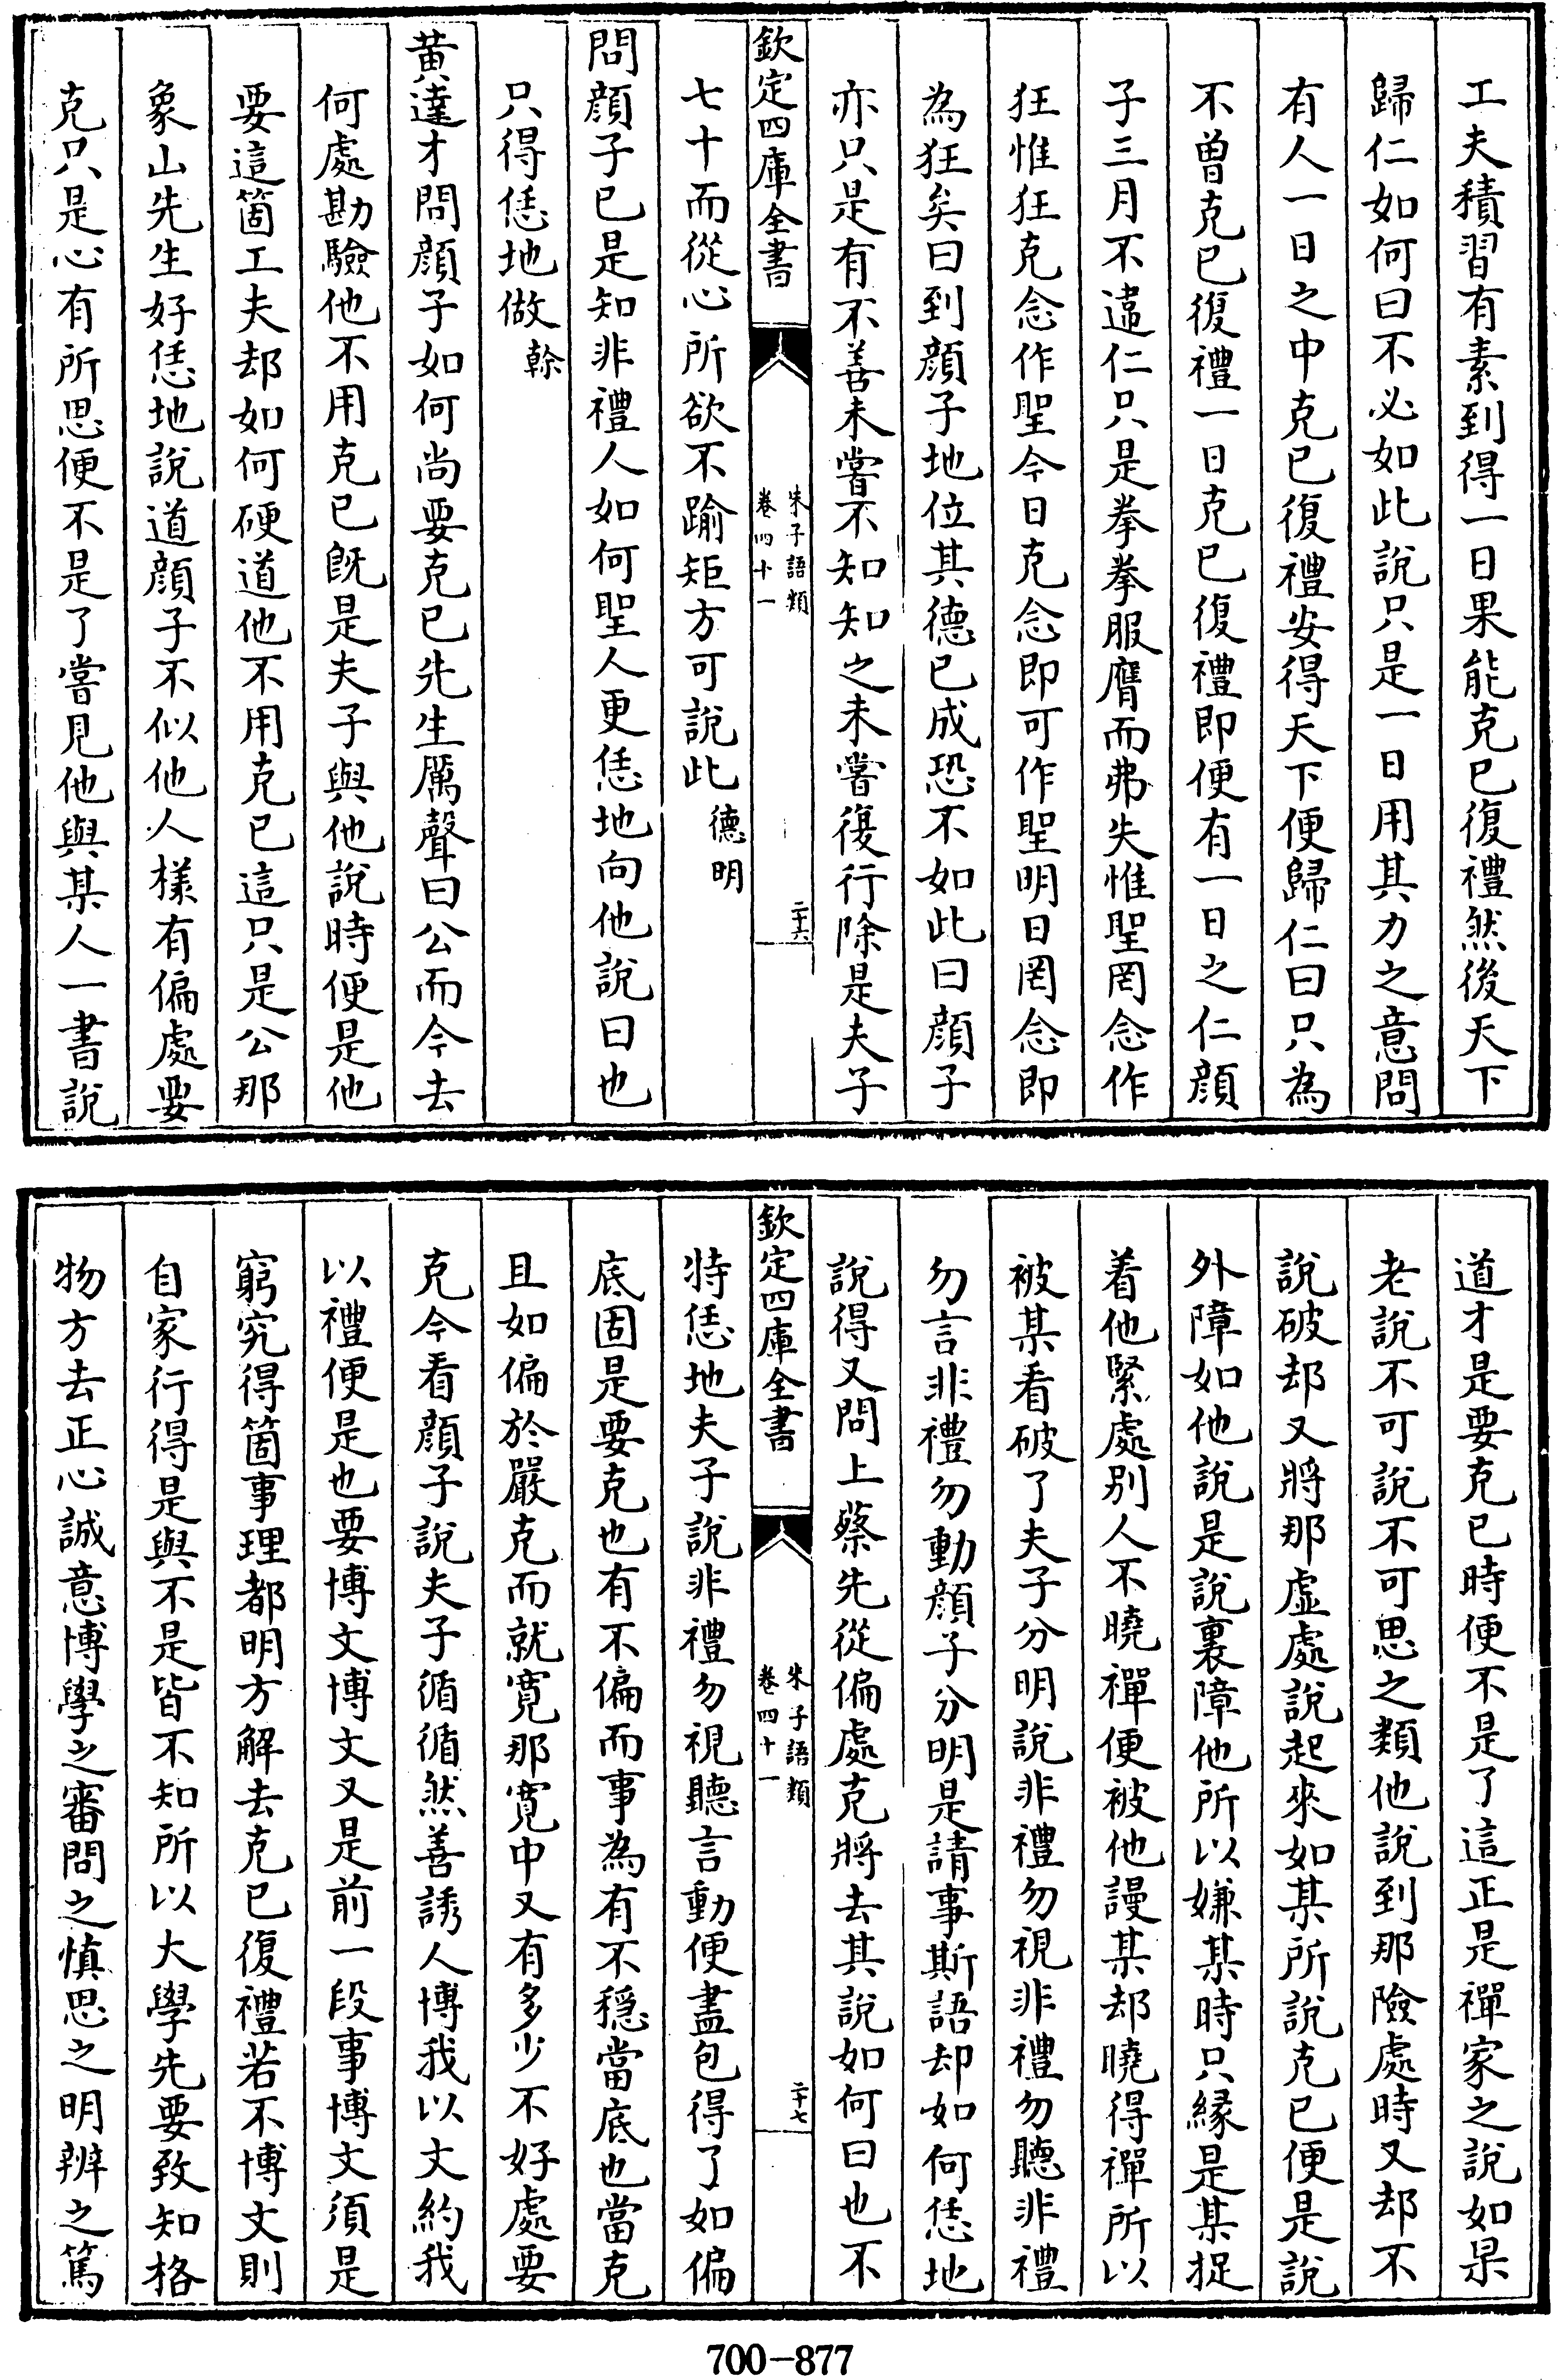 工夫積習有素到得一日果能克己復禮然後天下
歸仁如何曰不必如此說只是一日用其力之意問
有人一日之中克己復禮安得天下便歸仁曰只為
不曾克己復禮一日克己復禮即便有一日之仁顔
子三月不違仁只是拳拳服膺而弗失惟聖罔念作
狂惟狂克念作聖今日克念即可作聖明日罔念即
為狂矣曰到顔子地位其德已成恐不如此曰顔子
亦只是有不善未嘗不知知之未嘗復行除是夫子
欽定四庫全書
朱子語類
卷四十一
二十六
七十而從心所欲不踰矩方可說此德明
問顔子已是知非禮人如何聖人更恁地向他說曰也
只得恁地做榦
黄達才問顔子如何尚要克己先生厲聲曰公而今去
何處勘驗他不用克己既是夫子與他說時便是他
要這箇工夫却如何硬道他不用克己這只是公那
象山先生好恁地說道顔子不似他人樣有偏處要
克只是心有所思便不是了嘗見他與某人一書說
道才是要克己時便不是了這正是禪家之說如杲
老說不可說不可思之類他說到那險處時又却不
說破却又將那虚處說起來如某所說克己便是說
外障如他說是說裏障他所以嫌某時只緣是某捉
着他緊處別人不曉禪便被他謾某却曉得禪所以
被某看破了夫子分明說非禮勿視非禮勿聽非禮
勿言非禮勿動顔子分明是請事斯語却如何恁地
說得又問上蔡先從偏處克將去其說如何曰也不
欽定四庫全書
朱子語類
卷四十一
二十七
特恁地夫子說非禮勿視聽言動便盡包得了如偏
底固是要克也有不偏而事為有不穩當底也當克
且如偏於嚴克而就寛那寛中又有多少不好處要
克今看顔子說夫子循循然善誘人博我以文約我
以禮便是也要博文博文又是前一段事博文須是
窮究得箇事理都明方解去克己復禮若不博文則
自家行得是與不是皆不知所以大學先要致知格
物方去正心誠意博學之審問之慎思之明辨之篤
700-877